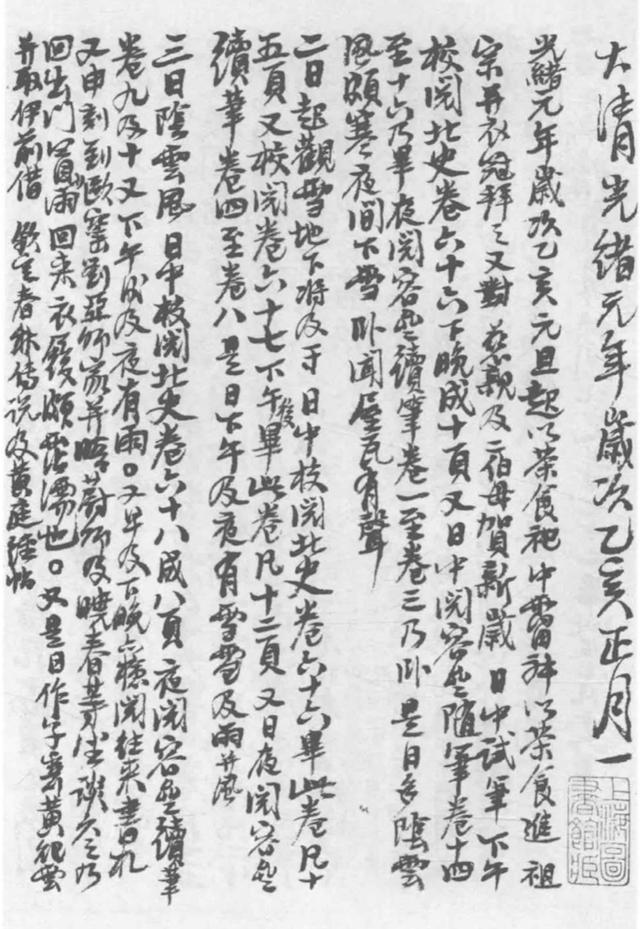 大清光緒元年歲次乙亥正月一
上海圖書館藏
光緒元年歲次乙亥元旦起以茶食祀中霤神以茶食進 祖
宗并衣冠拜之又對 慈親及二伯母賀新歲 日中試筆下午
校閱北史卷六十六下晚成十頁又日中閱容齋隨筆卷十四
至十六乃畢夜閱容齋續筆卷一至卷三乃卧是日多陰雲
風頗寒夜間下雪卧聞屋瓦有聲
二日起觀雪地下將及寸日中校閱北史卷六十六畢此卷凡十
五頁又校閱卷六十七下午後畢此卷凡十二頁又日夜閱容齋
續筆卷四至卷八是日下午及夜有雪雪及雨并風
三日陰雲風日中校閱北史卷六十八成八頁夜閱容齋續筆
卷九及十又下午後及夜有雨。又早及下晚二檢閱往來書札
又申刻到劉亞師家并晤蔚師及曉春等坐談久之乃
回出門冒雨回來衣履頗霑濡也。又是日作字寄黃
并取伊前借 欽定春秋傳說及黃庭經帖